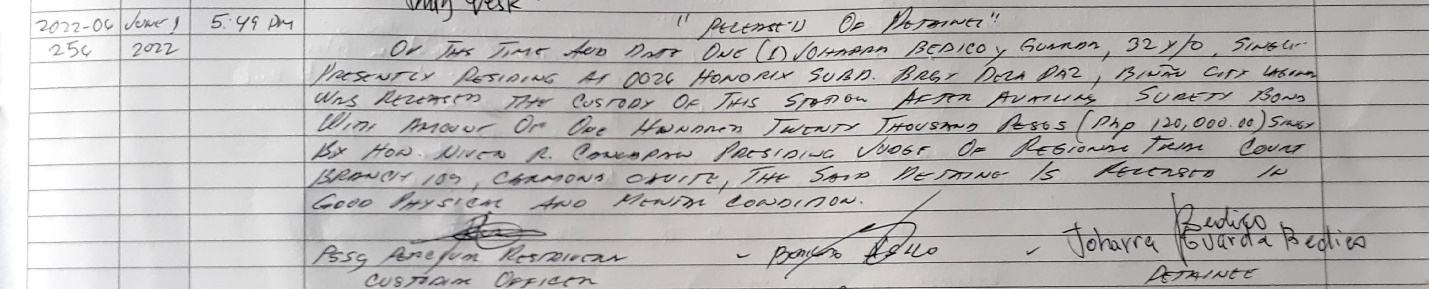 Duty Desk
2022-06 June 1 5:49 PM "RELEASED OF DETAINEE"
254 2022 OF THIS TIME AND DATE ONE (1) JOHARRA BEDICO y GUARDA, 32 y/o, SINGLE
PRESENTLY RESIDING AT 0026 HONORIX SUBD. BRGY DELA PAZ, BIÑAN CITY LAGUNA
WAS RELEASED THE CUSTODY OF THIS STATION AFTER AVAILING SURETY BOND
WITH AMOUNT OF ONE HUNDRED TWENTY THOUSAND PESOS (Php 120,000.00) SINGY
BY HON. R. PRESIDING JUDGE OF REGIONAL TRIAL COURT
BRANCH 109, CARMONA CAVITE, THE SAID DETAINE IS RELEASED IN
GOOD PHYSICAL AND MENTAL CONDITION.
PSSg - - Joharra Guarda Bedico
Bedico
CUSTODIAL OFFICER DETAINEE